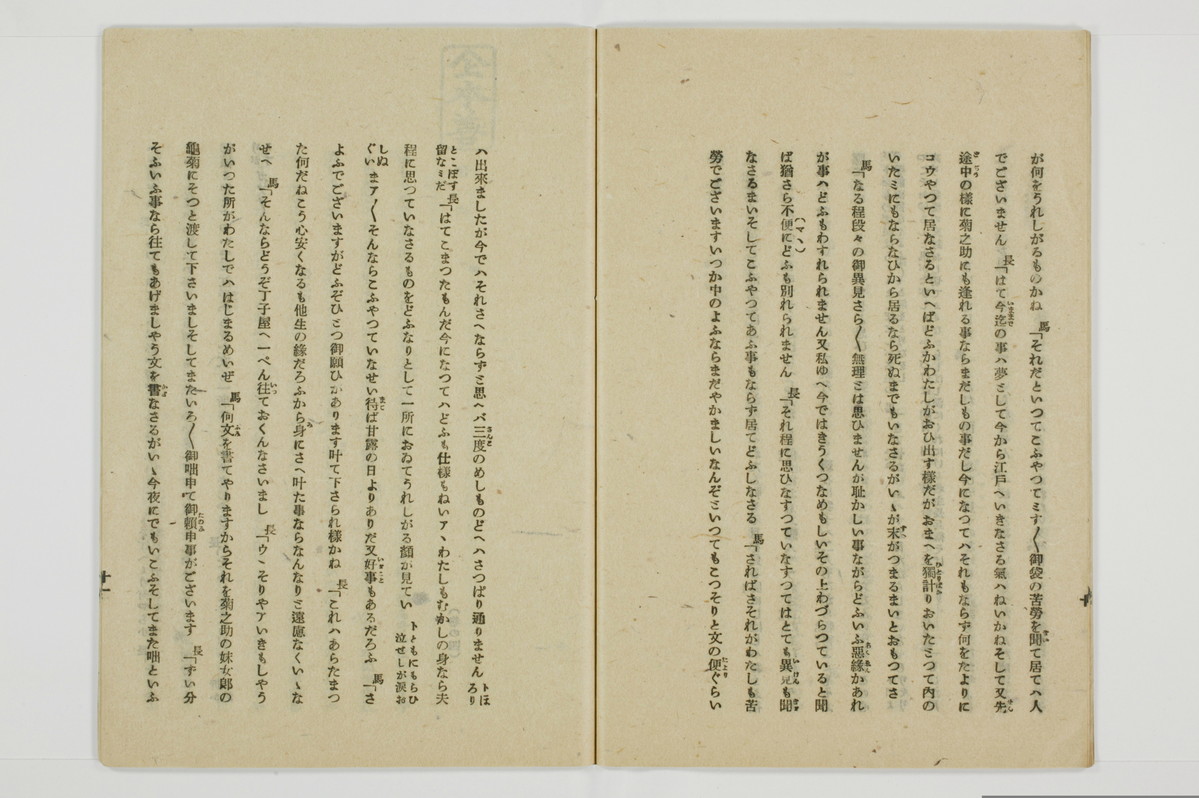 が何をうれしがるものかね 馬「それだといつてこふやつてミす〱御袋の苦勞を聞て居てハ人
でございません 長「はて今迄の事ハ夢として今から江戸へいきなさる氣ハねいかねそして又先
途中の樣に菊之助にも逢れる事ならまだしもの事だし今になつてハそれもならず何をたよりに
コウやつて居なさるといへばどふかわたしがおひ出す樣だがおまへを獨計りおいたとつて内の
いたミにもならなひから居るなら死ぬまでもいなさるがいゝが末がつまるまいとおもつてさ
馬「なる程段々の御異見さら〱無理とは思ひませんが恥かしい事ながらどふいふ惡緣かあれ
が事ハどふもわすれられません又私ゆへ今ではきうくつなめもしいその上わづらつていると聞
ば猶さら不便にどふも別れられません 長「それ程に思ひなすつていなすつてはとても異見も聞
(マヽ)
なさるまいそしてこふやつてあふ事もならず居てどふしなさる 馬「さればさそれがわたしも苦
勞でございますいつか中のよふならまだやかましいなんぞといつてもこつそりと文の便ぐらい
ハ出來ましたが今でハそれさへならずと思へバ三度のめしものどへハさつぱり通りません トほろり
とこぼす
留なミだ 長「はてこまつたもんだ今になつてハどふも仕樣もねいアヽわたしもむかしの身なら夫
程に思つていなさるものをどふなりとして一所におゐてうれしがる顏が見てい トともにもらひ泣せしが涙お
しぬ
ぐい まア〱そんならこふやつていなせい待ば甘露の日よりありだ又好事もあるだろふ 馬「さ
よふでございますがどふぞひとつ御願ひがあります叶て下さられ樣かね 長「これハあらたまつ
た何だねこう心安くなるも他生の緣だろふから身にさへ叶た事ならなんなりと遠慮なくいゝな
せへ 馬「そんならどうぞ丁子屋へ一ぺん往ておくんなさいまし 長「ウヽそりやアいきもしやう
がいつた所がわたしでハはじまるめいぜ 馬「何文を書てやりますからそれを菊之助の妹女郎の
龜菊にそつと渡して下さいましそしてまたいろ〱御咄申て御賴申事がございます 長「ずい分
そふいふ事なら往てもあげましやう文を書なさるがいゝ今夜にでもいこふそしてまた咄といふ
十一